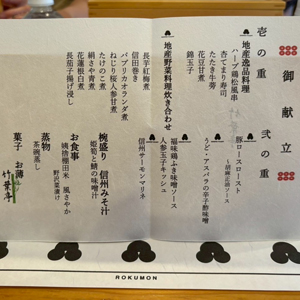 御献立
壱の重
地産逸品料理
ハーブ鶏松風串
杏てまり寿司
たたき牛蒡
花豆甘煮
錦玉子
地産野菜料理炊き合わせ
長芋紅梅煮
信田巻き
パプリカオランダ煮
ねじり桜人参甘煮
たけのこ煮
絹さや青煮
花蓮根白煮
長茄子揚げ浸し
弐の重
豚ロースロースト
～胡麻正油ソース
うど・アスパラの辛子酢味噌
福味鶏ふき味噌ソース
人参玉子キッシュ
信州サーモンマリネ
椀盛り 信州みそ汁
姫筍と鯖の味噌汁
お食事
姨捨棚田米 風さやか
野沢菜漬け
蒸物
茶碗蒸し
菓子 お薄
竹葉亭
ROKUMON